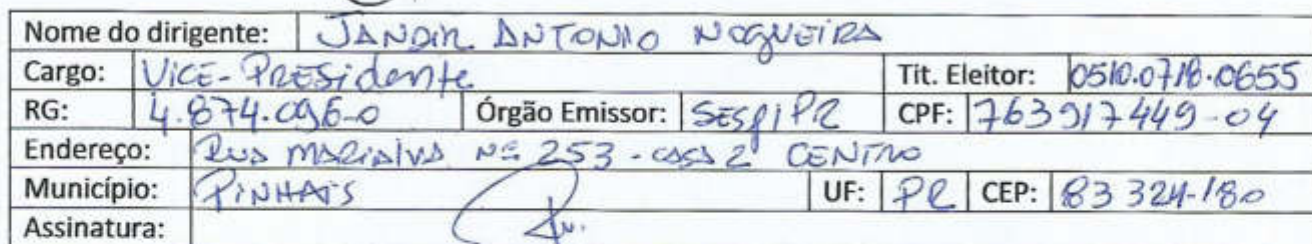 Nome do dirigente: JANDIR ANTONIO NOGUEIRA
Cargo: VICE-PRESidente Tit. Eleitor: 0510.0718.0655
RG: 4.874.096-0 Órgão Emissor: SESP/PR CPF: 763917449-04
Endereço: RUA MARIALVA Nº 253 - CASA 2 CENTRO
Município: PINHAIS UF: PR CEP: 83324-180
Assinatura: